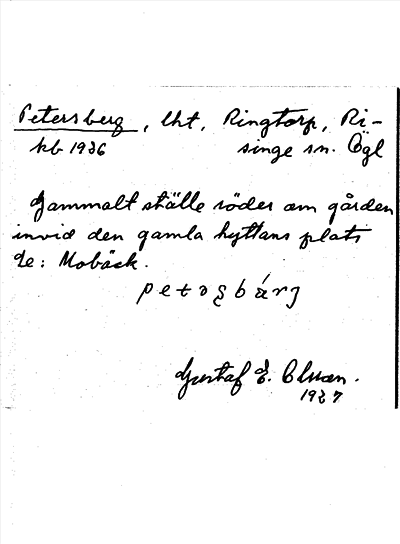 Petersberg, lht, Ringtorp, Ri-
kb 1936 singe sn. Ögl
Gammalt ställe söder om gården
invid den gamla hyttans plats
de: Mobäck.
Gustaf E. Olsson.
1937